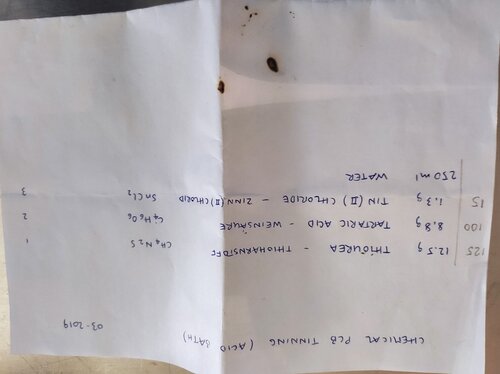 CHEMICAL PCB TINNING (ACID BATH) 03-2019
125 12.5 g THIOUREA - THIOHARNSTOFF CH4N2S 1
100 8.8 g TARTARIC ACID - WEINSÄURE C4H6O6 2
15 1.3 g TIN (II) CHLORIDE - ZINN (II) CHLORID SnCl2 3
250 ml WATER